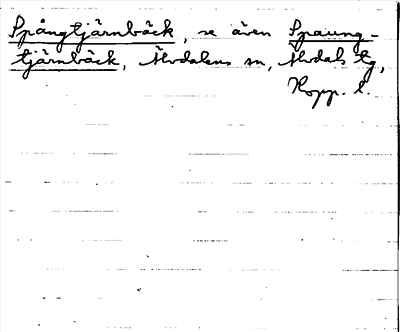 Spångtjärnbäck, se även Spaung-
tjärnbäck, Älvdalens sn, Älvdals tg,
Kopp. l.